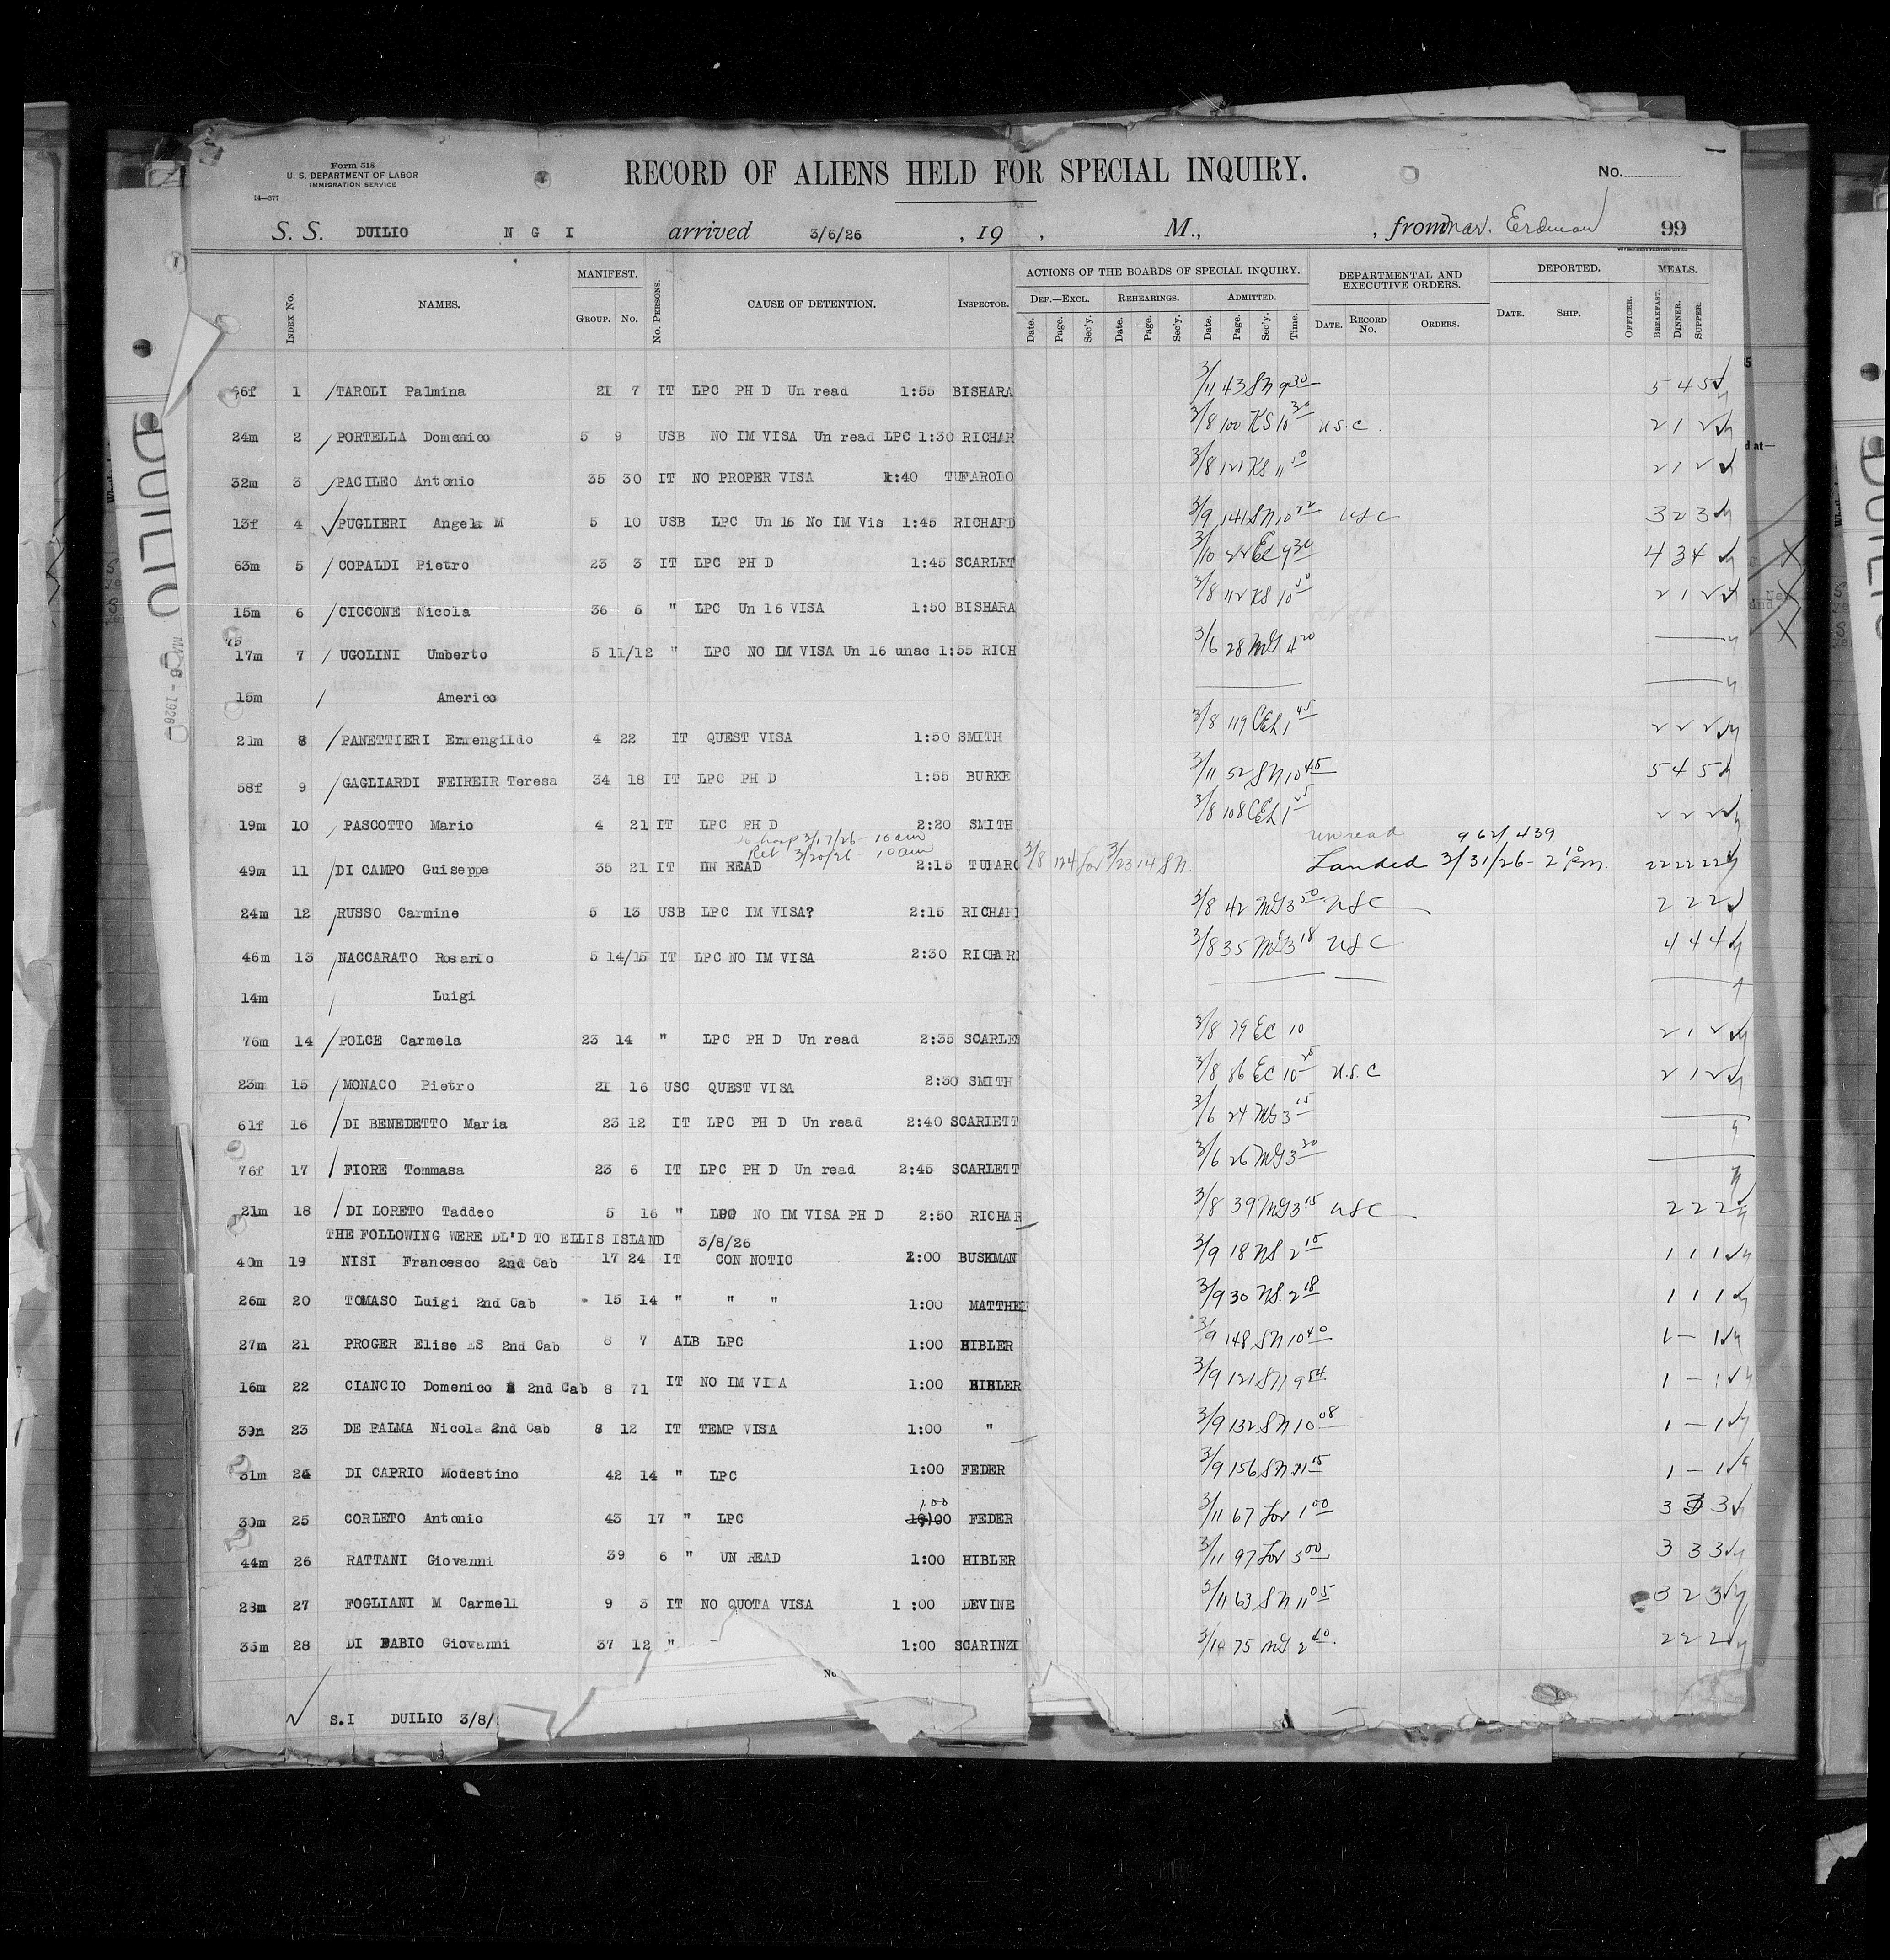 Form 518
U. S. DEPARTMENT OF LABOR
IMMIGRATION SERVICE
14—377
RECORD OF ALIENS HELD FOR SPECIAL INQUIRY.
No.
S. S. DUILIO N G I arrived 3/6/26 , 19 , M., , from 99
GOVERNMENT PRINTING OFFICE
INDEX No. NAMES. MANIFEST. GROUP. No. No. PERSONS. CAUSE OF DETENTION. INSPECTOR. ACTIONS OF THE BOARDS OF SPECIAL INQUIRY. DEF.—EXCL. Date. Page. Sec'y. REHEARINGS. Date. Page. Sec'y. ADMITTED. Date. Page. Sec'y. Time. DEPARTMENTAL AND EXECUTIVE ORDERS. DATE. RECORD No. ORDERS. DEPORTED. DATE. SHIP. OFFICER. MEALS. BREAKFAST. DINNER. SUPPER.
66f 1 TAROLI Palmina 21 7 IT LPC PH D Un read 1:55 BISHARA 3/11 43 SN 9 30 5 4 5
24m 2 PORTELLA Domenico 5 9 USB NO IM VISA Un read LPC 1:30 RICHAR 3/8 100 KS 10 30 U.S.C. 2 1 2
32m 3 PACILEO Antonio 35 30 IT NO PROPER VISA 1:40 TUFAROLO 3/8 121 KS 11 10 2 1 2
13f 4 PUGLIERI Angela M 5 10 USB LPC Un 16 No IM Vis 1:45 RICHARD 3/9 141 SN 10 22 USC 3 2 3
63m 5 COPALDI Pietro 23 3 IT LPC PH D 1:45 SCARLET 3/10 22 EC 9 30 4 3 4
15m 6 CICCONE Nicola 36 6 " LPC Un 16 VISA 1:50 BISHARA 3/8 112 KS 10 50 2 1 2
17m 7 UGOLINI Umberto 5 11/12 " LPC NO IM VISA Un 16 unac 1:55 RICH 3/6 28 MG 4 20
15m Americo
21m 8 PANETTIERI Ermengildo 4 22 IT QUEST VISA 1:50 SMITH 3/8 119 CEL 1 45 2 2 2
58f 9 GAGLIARDI FEIREIR Teresa 34 18 IT LPC PH D 1:55 BURKE 3/11 52 SN 10 45 5 4 5
19m 10 PASCOTTO Mario 4 21 IT LPC PH D 2:20 SMITH 3/8 108 CEL 1 25 2 2 2
To hosp 3/17/26 - 10 am unread 962/439
Ret 3/20/26 - 10 am
49m 11 DI CAMPO Guiseppe 35 21 IT UN READ 2:15 TUFARO 3/8 124 Lor 3/23 14 SN Landed 3/31/26 - 2 10 P.m. 22 22 22
24m 12 RUSSO Carmine 5 13 USB LPC IM VISA? 2:15 RICHAR 3/8 42 MG 3 50 USC 2 2 2
46m 13 NACCARATO Rosario 5 14/15 IT LPC NO IM VISA 2:30 RICHAR 3/8 35 MG 3 18 USC 4 4 4
14m Luigi
76m 14 POLCE Carmela 23 14 " LPC PH D Un read 2:35 SCARLE 3/8 79 EC 10 2 1 2
23m 15 MONACO Pietro 21 16 USC QUEST VISA 2:30 SMITH 3/8 86 EC 10 25 U.S.C 2 1 2
61f 16 DI BENEDETTO Maria 23 12 IT LPC PH D Un read 2:40 SCARLETT 3/6 24 MG 3 15
76f 17 FIORE Tommasa 23 6 IT LPC PH D Un read 2:45 SCARLETT 3/6 26 MG 3 30
21m 18 DI LORETO Taddeo 5 16 " LPC NO IM VISA PH D 2:50 RICHAR 3/8 39 MG 3 15 USC 2 2 2
THE FOLLOWING WERE DL'D TO ELLIS ISLAND 3/8/26
40m 19 NISI Francesco 2nd Cab 17 24 IT CON NOTIC 1:00 BUSHMAN 3/9 18 NS 2 15 1 1 1
26m 20 TOMASO Luigi 2nd Cab 15 14 " " " 1:00 MATTHE 3/9 30 NS. 2 18 1 1 1
27m 21 PROGER Elise ES 2nd Cab 8 7 ALB LPC 1:00 HIBLER 3/9 148 SN 10 40 1 — 1
16m 22 CIANCIO Domenico 2nd Cab 8 71 IT NO IM VISA 1:00 HIBLER 3/9 121 SN 9 54 1 — 1
39m 23 DE PALMA Nicola 2nd Cab 8 12 IT TEMP VISA 1:00 " 3/9 132 SN 10 08 1 — 1
31m 24 DI CAPRIO Modestino 42 14 " LPC 1:00 FEDER 3/9 156 SN 11 15 1 — 1
30m 25 CORLETO Antonio 43 17 " LPC 1:00 FEDER 3/11 67 Lor 1 00 3 3 3
44m 26 RATTANI Giovanni 39 6 " UN READ 1:00 HIBLER 3/11 97 Lor 3 00 3 3 3
28m 27 FOGLIANI M Carmell 9 3 IT NO QUOTA VISA 1 :00 DEVINE 3/11 63 SN 11 05 3 2 3
35m 28 DI FABIO Giovanni 37 12 " 1:00 SCARINZI 3/10 75 MG 2 40 2 2 2
No
S.I DUILIO 3/8/
DUILIO